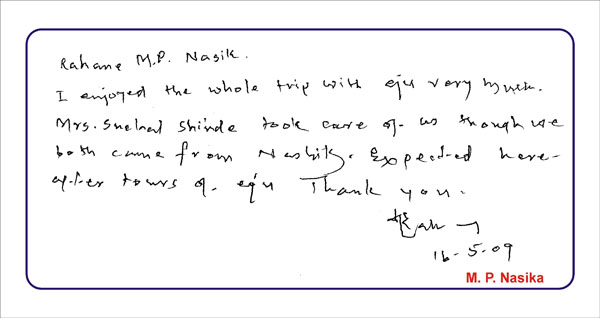 Rahane M.P. Nasik.
I enjoyed the whole trip with eju very much.
Mrs. Snehal Shinde took care of us though we
both came from Nashik. Expected here-
after tours of eju Thank you.
16-5-09
M. P. Nasika